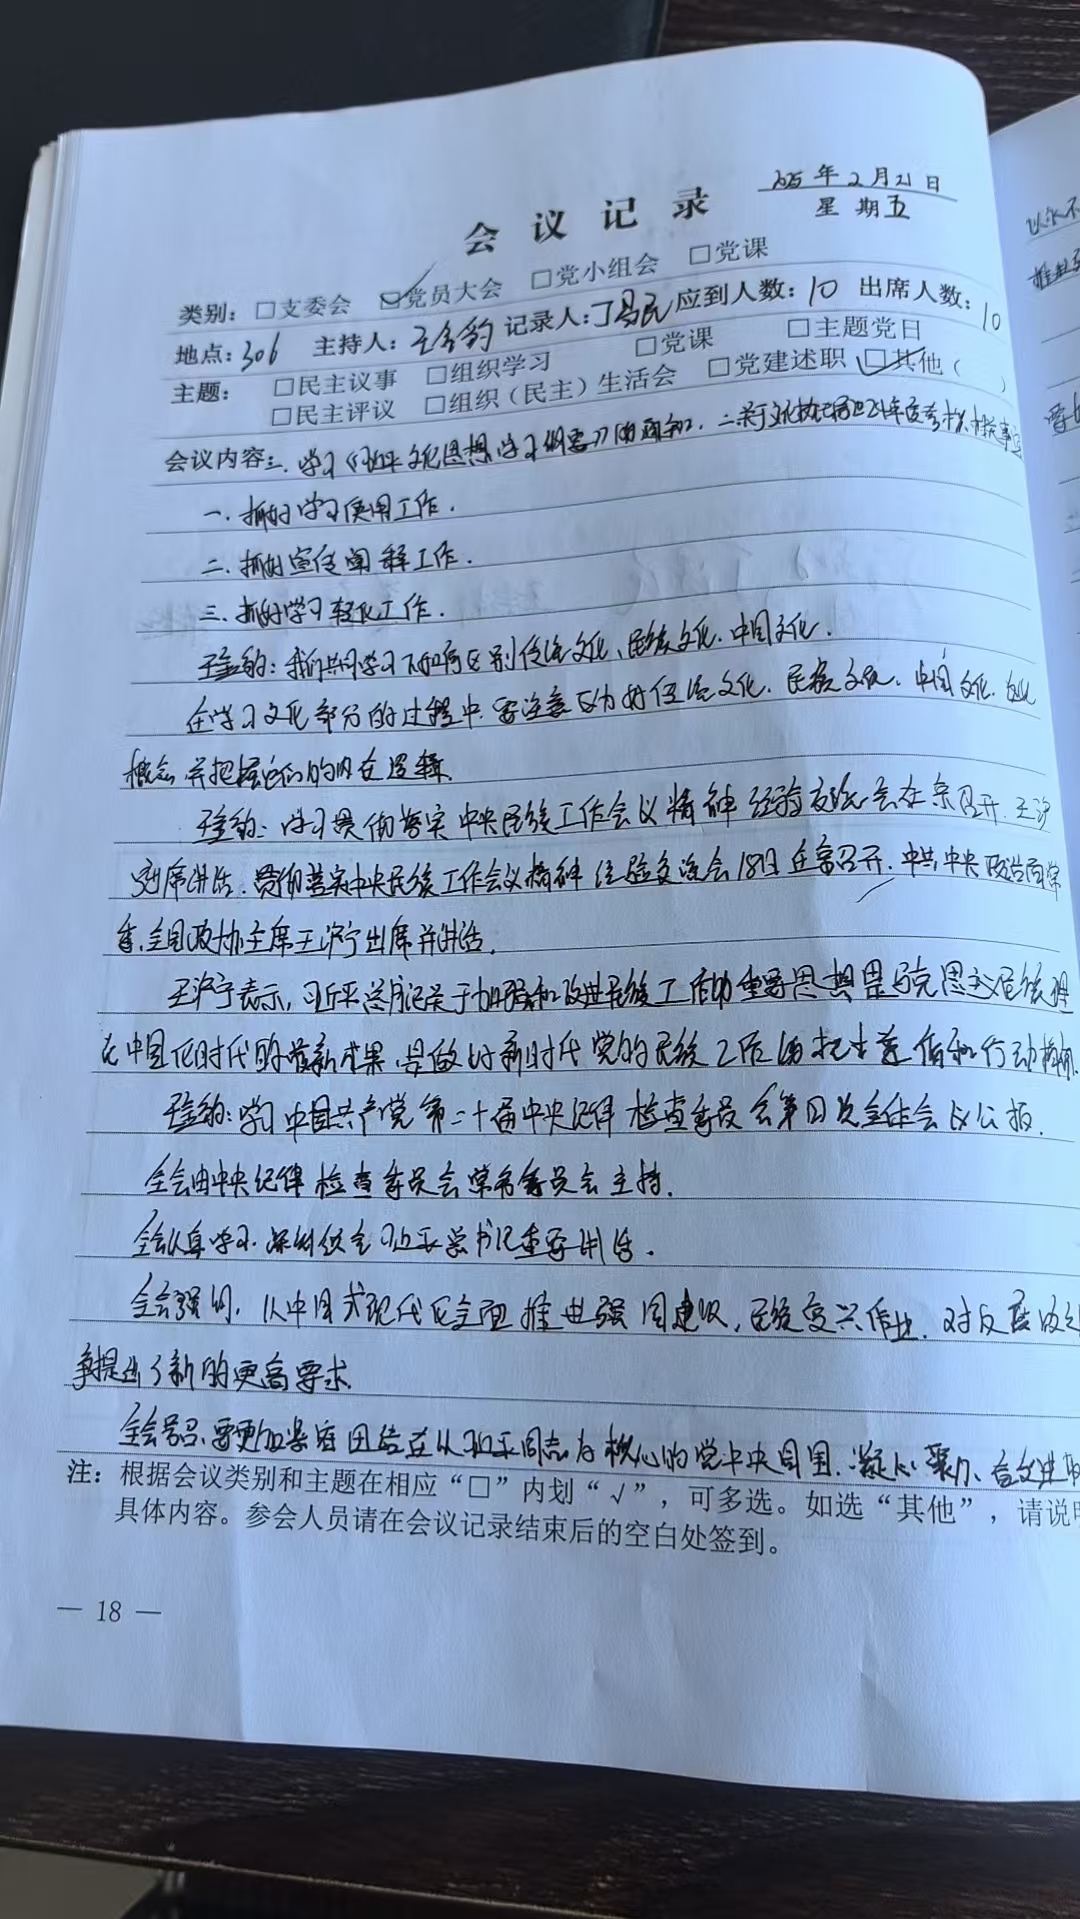 2025年2月21日
会议记录
星期五
类别：□支委会 □党员大会 □党小组会 □党课
地点：306 主持人：王金豹 记录人：丁昌民 应到人数：10 出席人数：10
主题：□民主议事 □组织学习 □党课 □主题党日
□民主评议 □组织（民主）生活会 □党建述职 □其他（ ）
会议内容：一、学习《习近平文化思想学习纲要》的通知. 二、关于文化 24年度考核相关事宜
一. 抓好学习使用工作.
二. 抓好宣传阐释工作.
三. 抓好学习转化工作.
王金豹：我们共同学习下如何区别传统文化、民族文化. 中国文化.
在学习文化部分的过程中. 要注意区分好传统文化. 民族文化. 中国文化. 文化
概念. 并把握它们的内在逻辑.
王金豹：学习贯彻落实中央民族工作会议精神经验交流会在京召开. 王沪
宁出席讲话. 贯彻落实中央民族工作会议精神经验交流会18日在京召开. 中共中央政治局常
委. 全国政协主席王沪宁出席并讲话.
王沪宁表示, 习近平总书记关于加强和改进民族工作的重要思想是马克思主义民族理
论中国化时代的最新成果, 是做好新时代党的民族工作的 和行动指南.
王金豹：学习中国共产党第二十届中央纪律检查委员会第四次全体会议公报.
全会由中央纪律检查委员会常务委员会主持.
全会认真学习. 深刻领会习近平总书记重要讲话.
全会强调, 以中国式现代化全面推进强国建设, 民族复兴伟业. 对反腐败斗
争提出了新的更高要求.
全会号召、要更加紧密团结在以习近平同志为核心的党中央周围. 凝心聚力、奋发进取
注：根据会议类别和主题在相应“□”内划“√”，可多选。如选“其他”，请说明
具体内容。参会人员请在会议记录结束后的空白处签到。
— 18 —